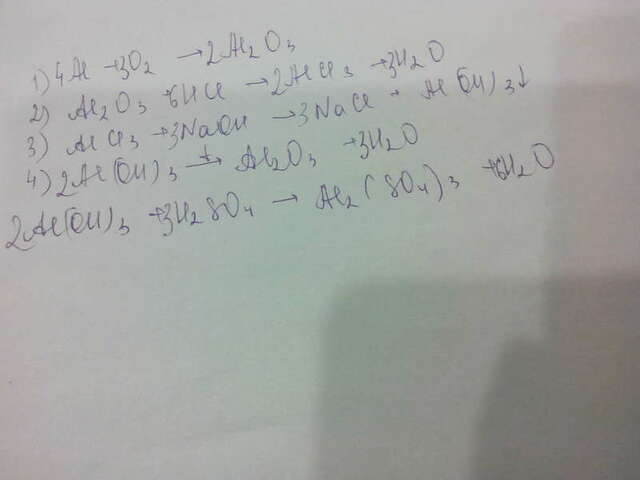 1) 4Al + 3O₂ → 2Al₂O₃
2) Al₂O₃ + 6HCl → 2AlCl₃ + 3H₂O
3) AlCl₃ + 3NaOH → 3NaCl + Al(OH)₃↓
4) 2Al(OH)₃ →t Al₂O₃ + 3H₂O
2Al(OH)₃ + 3H₂SO₄ → Al₂(SO₄)₃ + 6H₂O